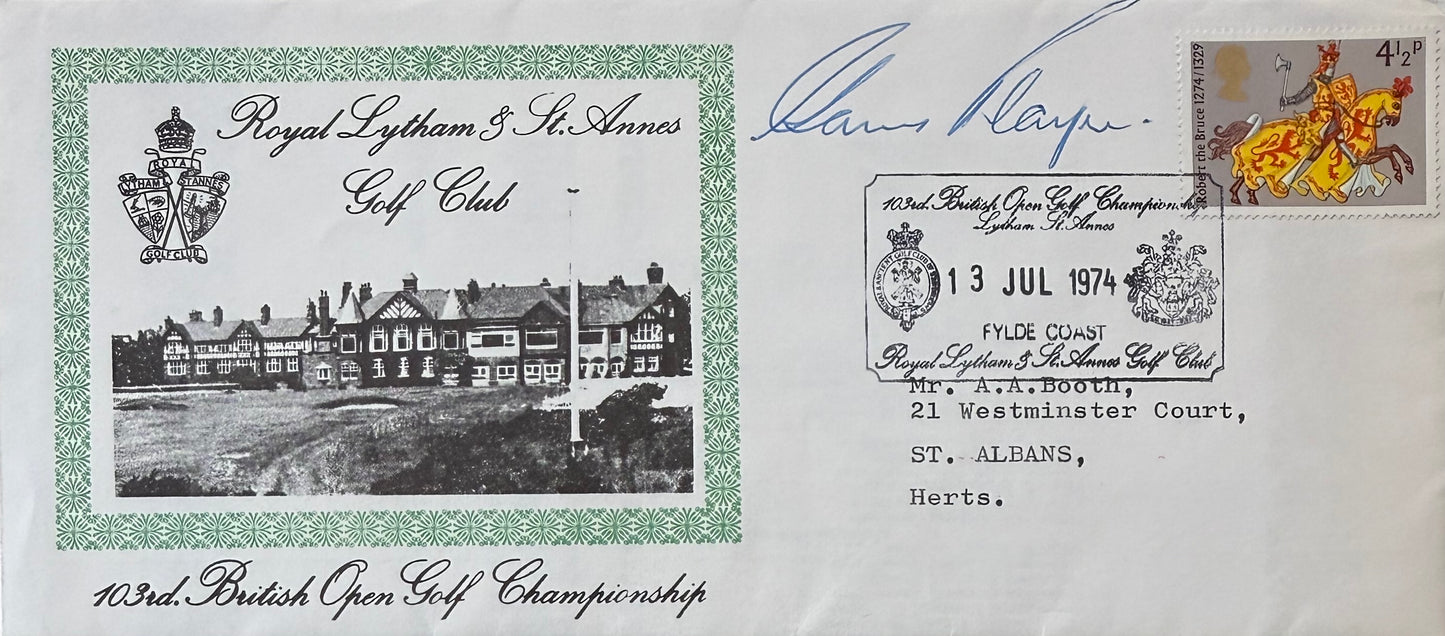 Royal Lytham & St. Annes
Golf Club
ROYAL
LYTHAM ST ANNES
GOLF CLUB
103rd. British Open Golf Championship
Robert the Bruce 1274/1329
4½P
103rd. British Open Golf Championship
Lytham St. Annes
13 JUL 1974
FYLDE COAST
Royal Lytham & St. Annes Golf Club
Mr. A.A.Booth,
21 Westminster Court,
ST. ALBANS,
Herts.